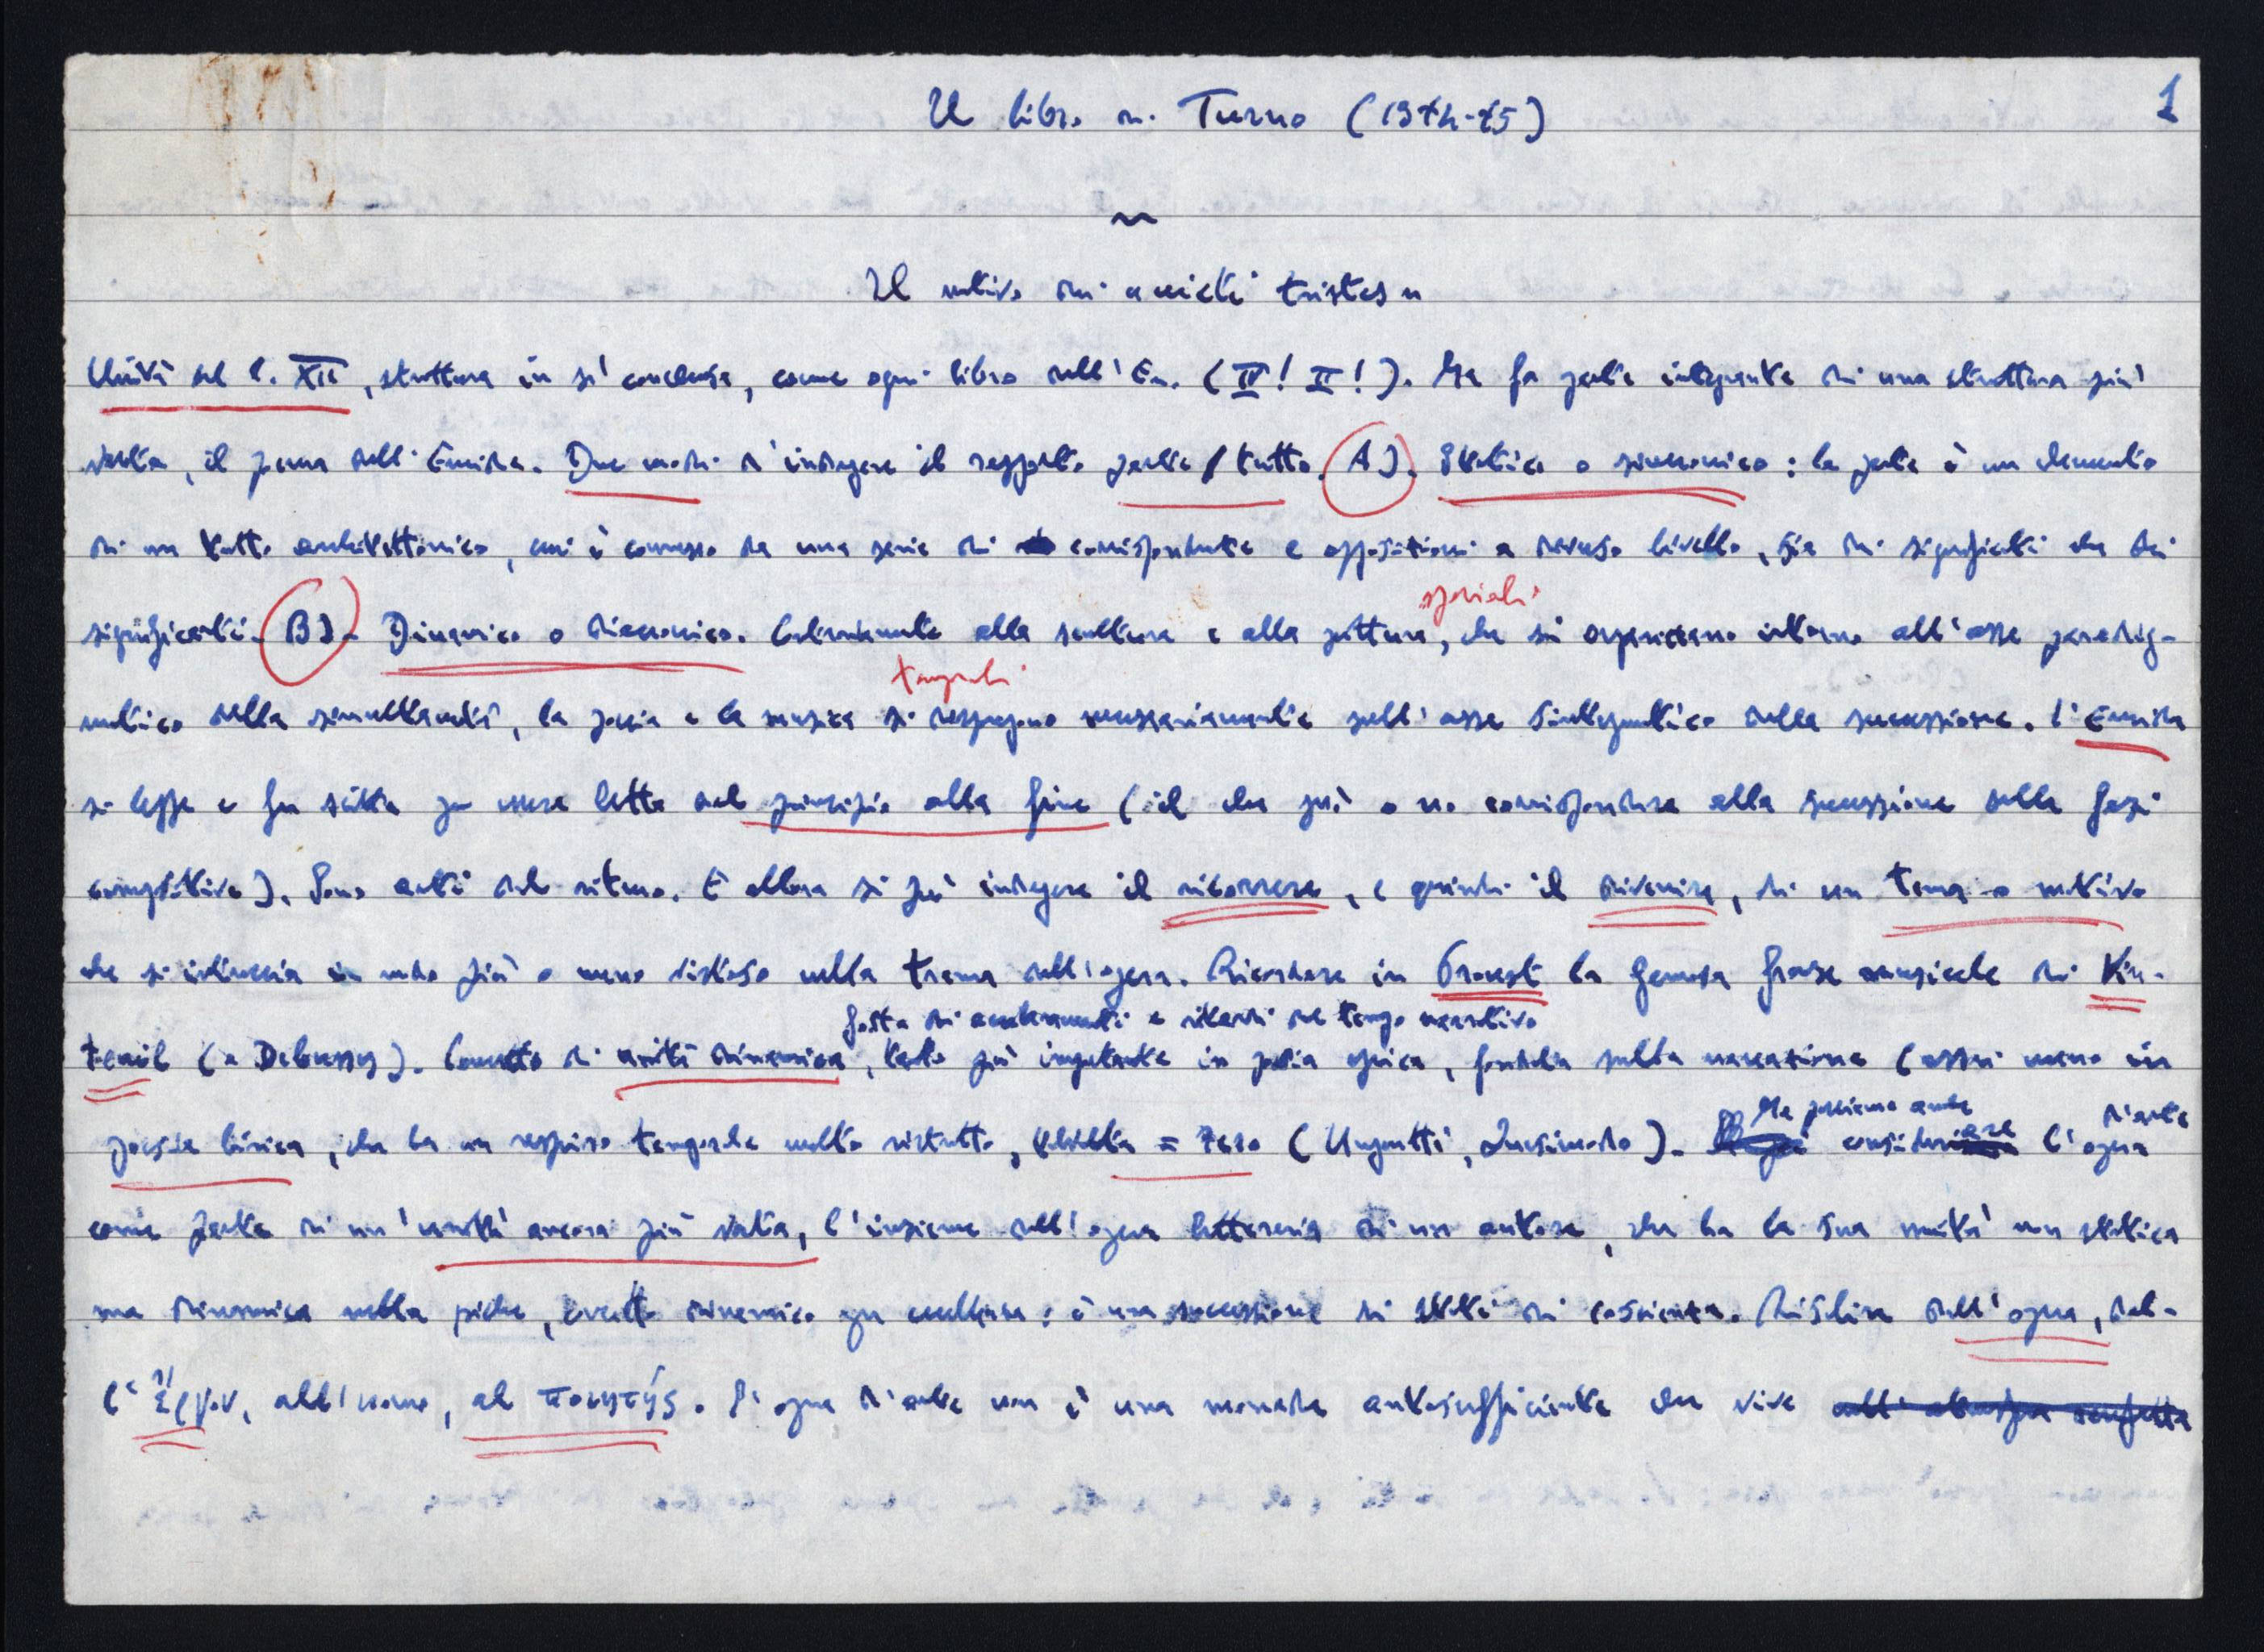 1
Il libro di Turno (1974-75)
~
Il motivo di "amicti tristes"
Unità del l. XII, struttura in sé conclusa, come ogni libro dell'En. (IV! II!). Ma fa parte integrante di una struttura più
vasta, il poema dell'Eneide. Due modi d'indagare il rapporto parte / tutto. A). Statico o sincronico: la parte è un elemento
di un tutto architettonico, cui è connesso da una serie di corrispondenze e opposizioni a diverso livello, sia di significati che di
significanti. B). Dinamico o diacronico. Contrariamente alla scultura e alla pittura, che si organizzano intorno all'asse paradig-
spaziali
matico della simultaneità, la poesia e la musica si dispongono necessariamente sull'asse sintagmatico della successione. L'Eneide
temporali
si legge e fu scritta per essere letta dal principio alla fine (il che può o no corrispondere alla successione delle fasi
compositive). Sono arti del ritmo. E allora si può indagare il ricorrere, e quindi il divenire, di un tema o motivo
che si intreccia in modo più o meno vistoso nella trama dell'opera. Ricordare in Proust la famosa frase musicale di Vin-
fatta di acceleramenti e ritardi del tempo narrativo
teuil (e Debussy). Concetto di unità dinamica, tanto più importante in poesia epica, fondata sulla narrazione (assai meno in
Ma possiamo anche
d'arte
poesia lirica, che ha un respiro temporale molto ridotto, talvolta = zero (Ungaretti, Quasimodo). considerare l'opera
come parte di un'unità ancora più vasta, l'insieme dell'opera letteraria di un autore, che ha la sua unità non statica
ma dinamica nella psiche, evento dinamico per eccellenza: è una successione di stati di coscienza. Risalire dall'opera, dal-
l'ἔργον, all'uomo, al ποιητής. L'opera d'arte non è una monade autosufficiente che vive